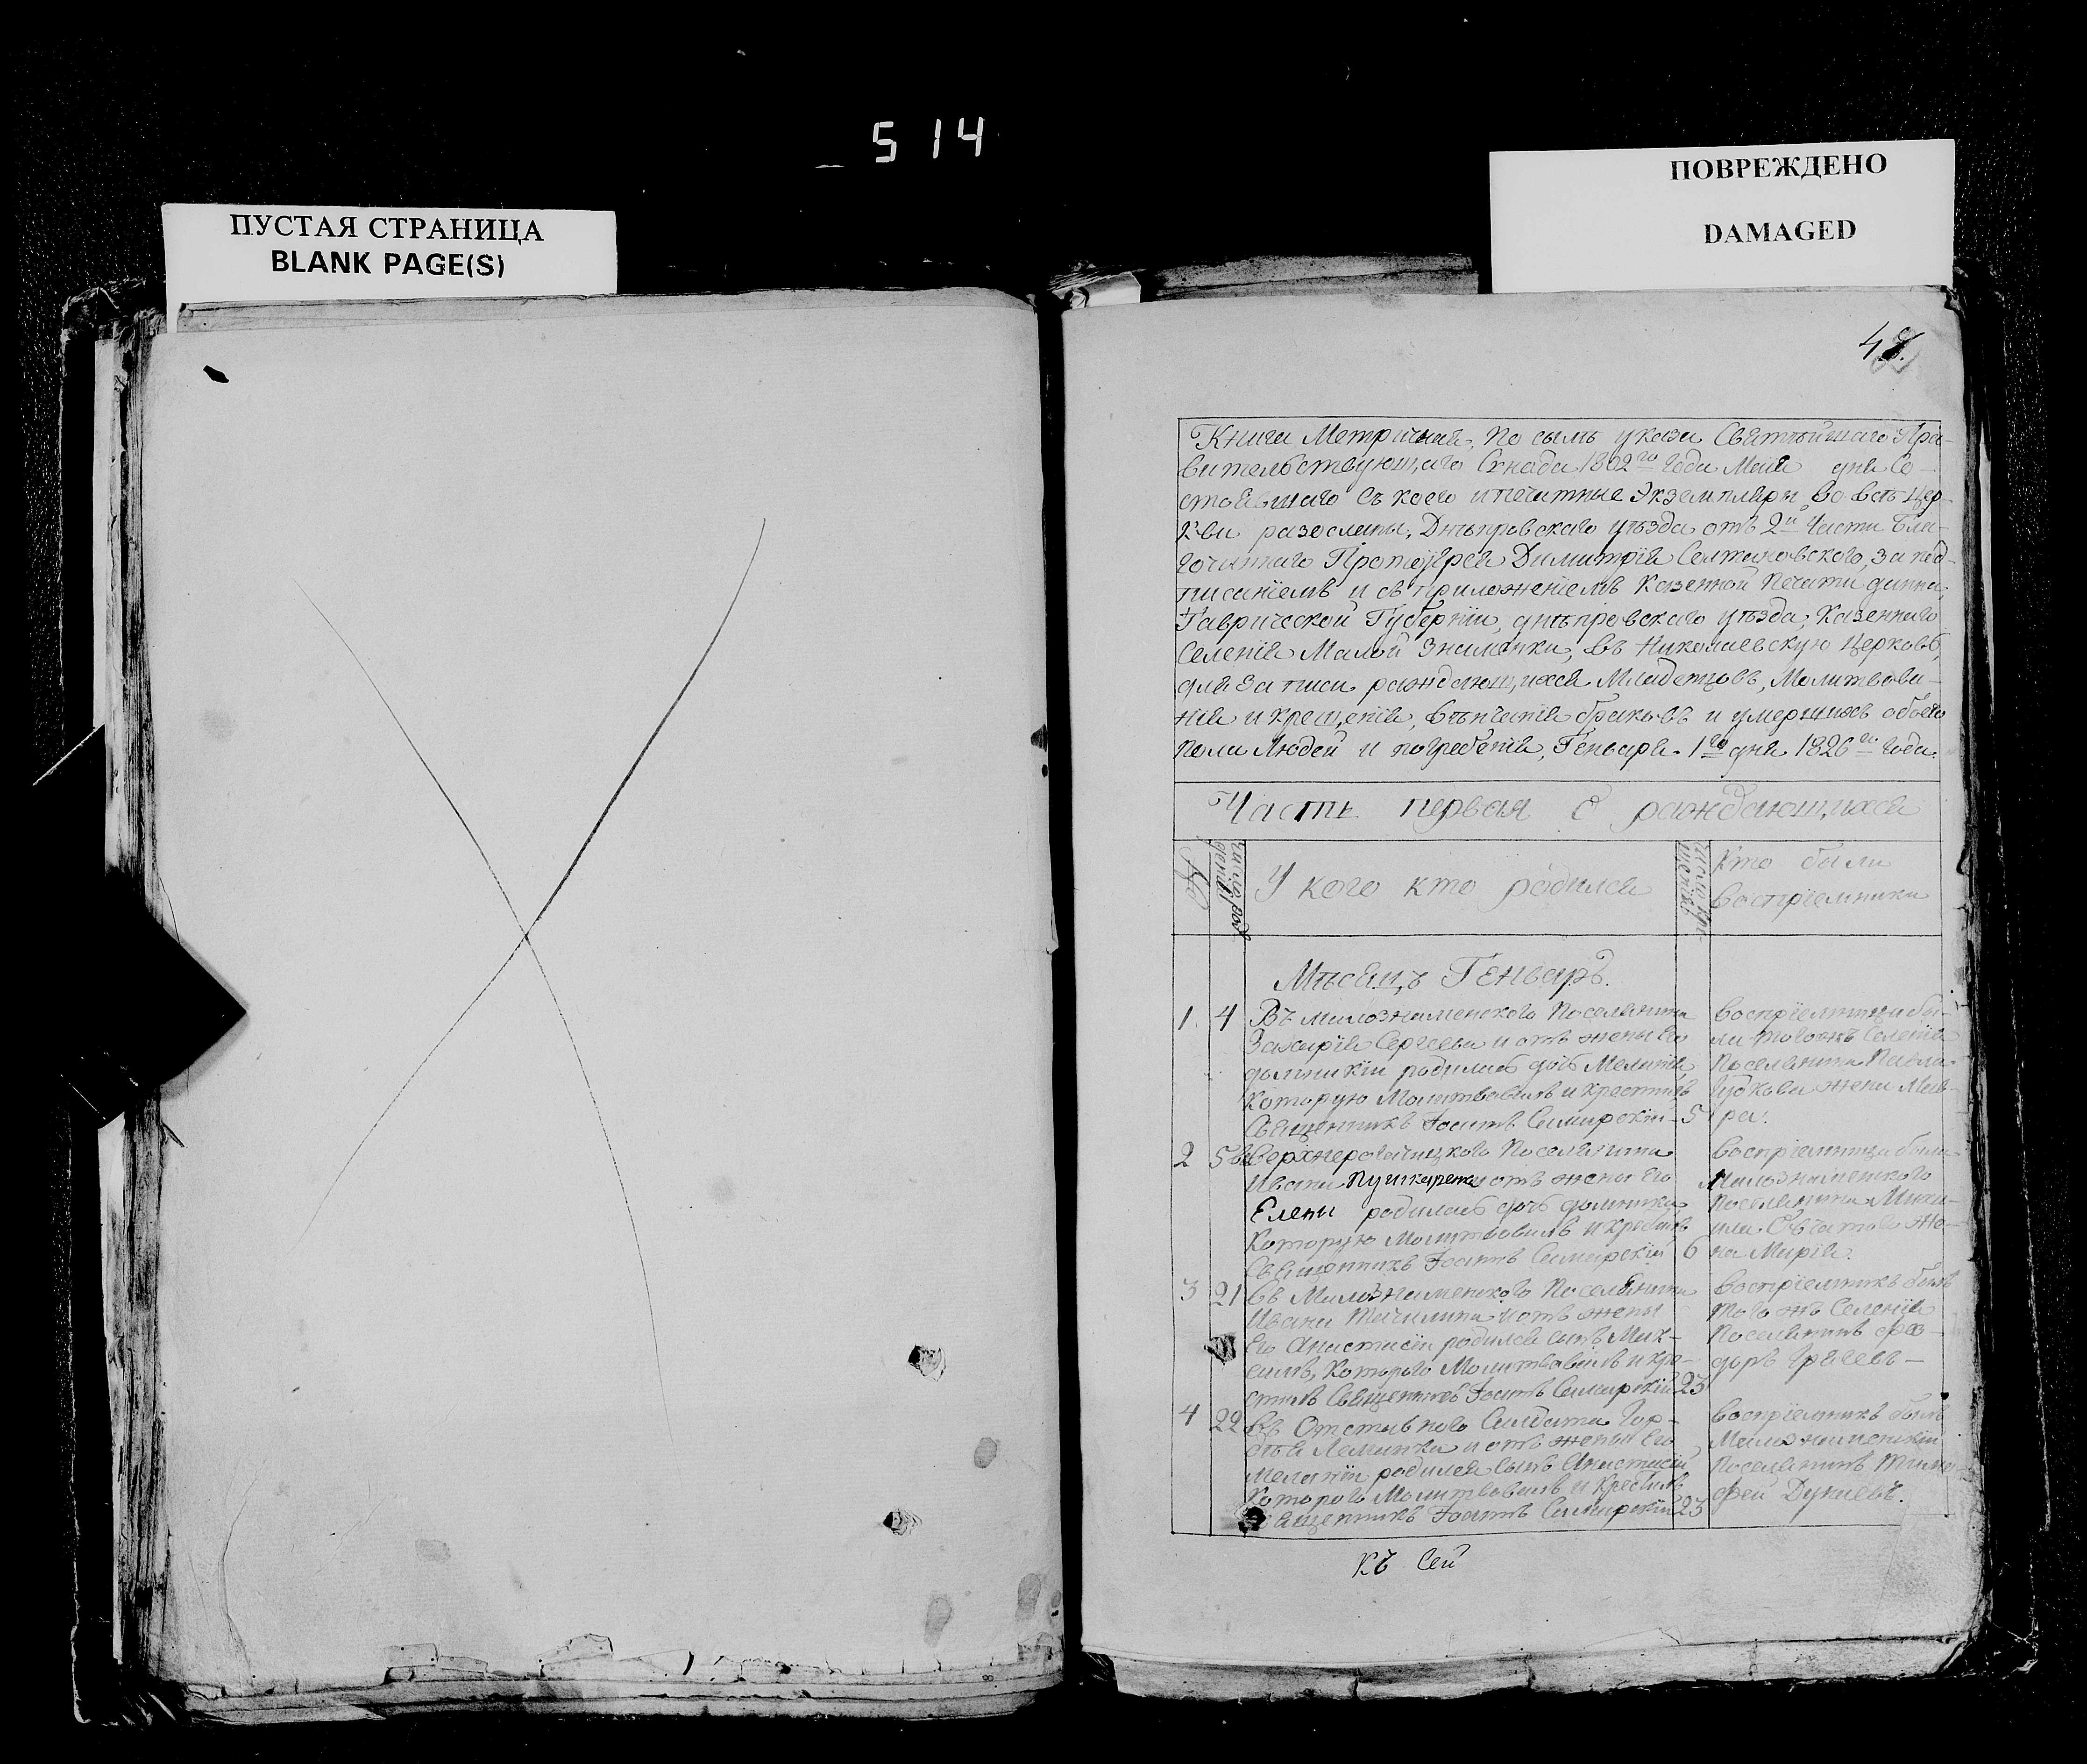 514
ПУСТАЯ СТРАНИЦА
BLANK PAGE(S)
ПОВРЕЖДЕНО
DAMAGED
Книга Метричная, по силѣ указа Святѣйшаго Пра-
вительствующаго Сѵнода 1802го года Маія дня Со-
стоявшаго съ коего и печатные Экземпляры во всѣ Цер-
кви разосланы, Днѣпровскаго уѣзда отъ 2й Части Бла-
гочиннаго Протоіерея Димитрія за под-
писаніемъ и съ приложеніемъ Казенной Печати данна
Таврической Губерніи, днѣпровскаго уѣзда, Казеннаго
Селенія Малой Знаменки, въ Николаевскую Церковь,
для записи раждающихся Младенцовъ, Молитвова-
нія и крещенія, вѣнчанія браковъ и умершихъ обоего
пола Людей и погребенія, Генваря 1го дня 1826го года.
Часть первая о раждающихся
У кого кто родился
Кто были
воспріемники
Мѣсяцъ Генварь
1 4 Въ малознаменского Поселянина
Захарія Сергеева и отъ жены Его
родилась дочь Меланія,
которую Молитвовалъ и крестилъ
Священникъ Іоаннъ Самарскій 5
воспріемница бы-
ла тогожъ Селенія
Поселянина Павла
Губкова жена Мав-
ра.
2 5 Верхнерогачицкого Поселянина
Ивана Пушкарена отъ жены Его
Елены родилась дочь домника
Которую Молитвовалъ и крестилъ
Священникъ Іоаннъ Самарскій 6
воспріемница была
Малознаменского
поселянина Миха-
ила же-
на Марія.
3 21 въ Малознаменского Поселянина
Ивана и отъ жены
Его Анастасіи родился сынъ Мак-
симъ, Которого Молитвовалъ и кре-
стилъ Священникъ Іоаннъ Самарскій 23
воспріемникъ былъ
того жъ Селенія
Поселянинъ Фео-
доръ Грачевъ
4 22 въ Отставного Салдата Гор-
дѣя и отъ жены Его
Меланіи родился сынъ Анастасій
Которого Молитвовалъ и Крестилъ
Священникъ Іоаннъ Самарскій 23
воспріемникъ былъ
Малознаменскій
поселянинъ Тимо-
фей Дунаевъ.
КЪ Сей